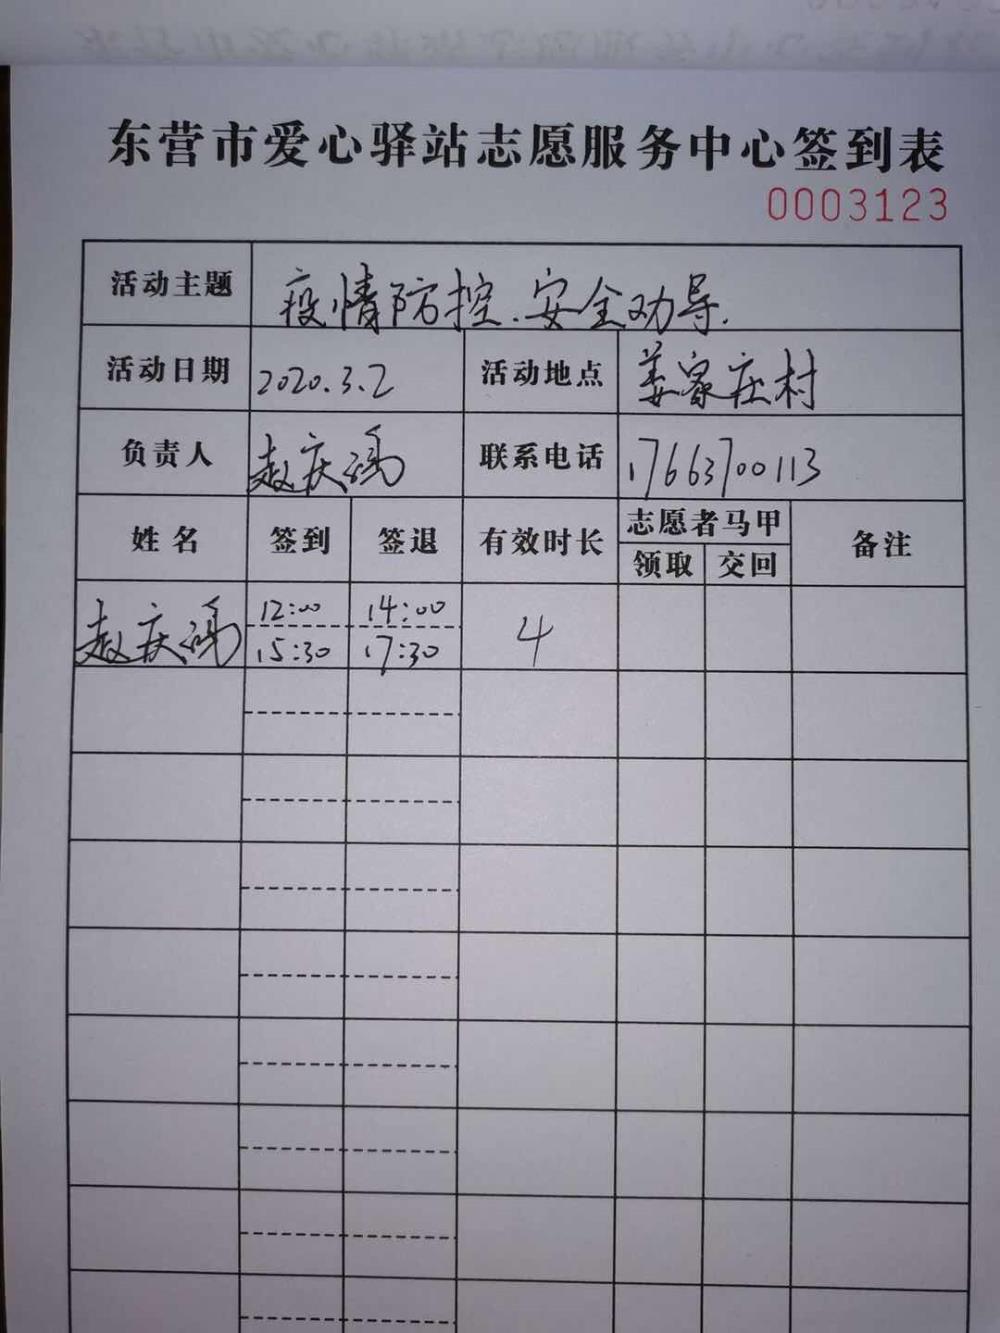 东营市爱心驿站志愿服务中心签到表
0003123
活动主题 疫情防控.安全劝导.
活动日期 2020.3.2 活动地点 姜家庄村
负责人 赵庆鸿 联系电话 17663700113
姓名 签到 签退 有效时长 志愿者马甲 备注
领取 交回
赵庆鸿 12:00 14:00 4
15:30 17:30